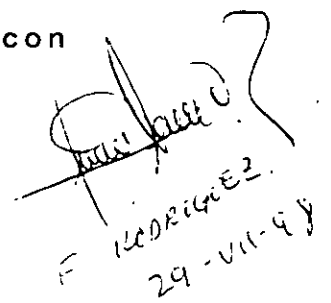 con
F RODRIGUEZ.
29-VII-98